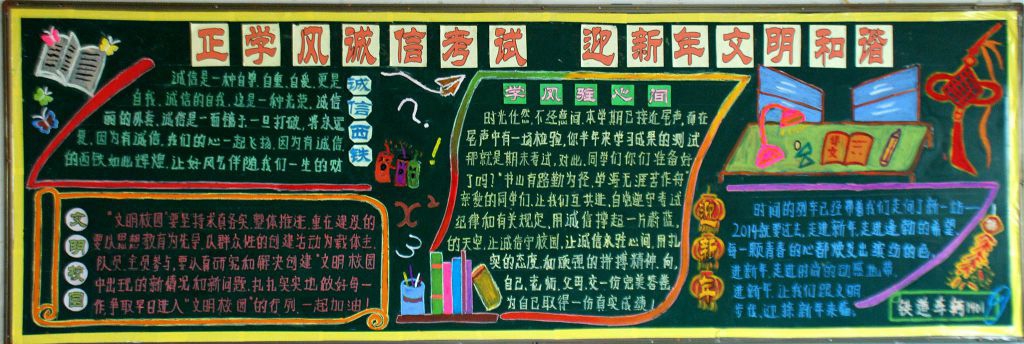 正学风诚信考试 迎新年文明和谐
诚信西铁
诚信是一种自尊、自重、自爱,更是
自我、诚信的自我,这是一种光荣,诚信
丽的外套,诚信是一面镜子,一旦打破,将永远
夏,因为有诚信,我们的心一起飞扬,因为有诚信
的西铁如此辉煌,让好风气伴随我们一生的对
文明校园
"文明校园"要坚持求真务实,整体推进,重在建设的
要以思想教育为先导,以群众性的创建活动为载体,主
队员、全员参与,要认真研究和解决创建"文明校园
中出现的新情况和新问题,扎扎实实地做好每一
作,争取早日进入"文明校园"的行列,一起加油!
学风驻心间
时光住然,不经意间,本学期已接近尾声,而在
尾声中有一场检验,你半年来学习成果的测试
那就是期末考试,对此,同学们你们准备好
了吗?"书山有路勤为径,学海无涯苦作舟
亲爱的同学们,让我们互共进,自觉遵守考试
纪律和有关规定,用诚信撑起一片蔚蓝
的天空,让诚信守校园,让诚信永驻心间,用扎
实的态度,和顽强的拼搏精神,向
自己,老师,父母,交一份完美答卷
为自己取得一份真实成绩!
x²
3
作文
迎新年
时间的列车已经带着我们走向了新一站——
2014就要过去,走进新年,走进逢新的希望
每一颗青春的心都焕发出缤动的色,
进新年,走进时尚的动感地带,
进新年,让我们跟文明
步伐,迎接新年来临。
铁道车辆1401